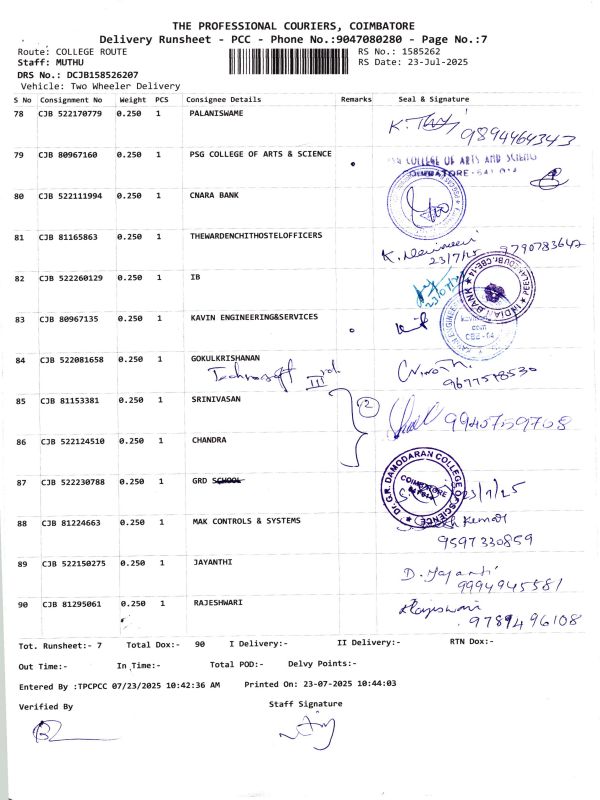 THE PROFESSIONAL COURIERS, COIMBATORE
Delivery Runsheet - PCC - Phone No.:9047080280 - Page No.:7
Route: COLLEGE ROUTE RS No.: 1585262
Staff: MUTHU RS Date: 23-Jul-2025
DRS No.: DCJB158526207
Vehicle: Two Wheeler Delivery
S No Consignment No Weight PCS Consignee Details Remarks Seal & Signature
78 CJB 522170779 0.250 1 PALANISWAME
9894464343
79 CJB 80967160 0.250 1 PSG COLLEGE OF ARTS & SCIENCE PSG COLLEGE OF ARTS AND SCIENC
COIMBATORE-641 014
80 CJB 522111994 0.250 1 CNARA BANK
81 CJB 81165863 0.250 1 THEWARDENCHITHOSTELOFFICERS
23/7/25 9790783647
82 CJB 522260129 0.250 1 IB
INDIAN BANK
83 CJB 80967135 0.250 1 KAVIN ENGINEERING&SERVICES
84 CJB 522081658 0.250 1 GOKULKRISHANAN
Technosoft IIIrd
9677518530
85 CJB 81153381 0.250 1 SRINIVASAN 2
9940759708
86 CJB 522124510 0.250 1 CHANDRA
87 CJB 522230788 0.250 1 GRD SCHOOL
Dr.G.R. DAMODARAN COLLEGE OF SCIENCE
COIMBATORE
23/7/25
88 CJB 81224663 0.250 1 MAK CONTROLS & SYSTEMS Kumar
9597330859
89 CJB 522150275 1 0.250 JAYANTHI
D. Jayanti
9994945581
90 CJB 81295061 0.250 1 RAJESHWARI Rajeswari
9789496108
Tot. Runsheet:- 7 Total Dox:- 90 I Delivery:- II Delivery:- RTN Dox:-
Out Time:- In Time:- Total POD:- Delvy Points:-
Entered By :TPCPCC 07/23/2025 10:42:36 AM Printed On: 23-07-2025 10:44:03
Verified By Staff Signature